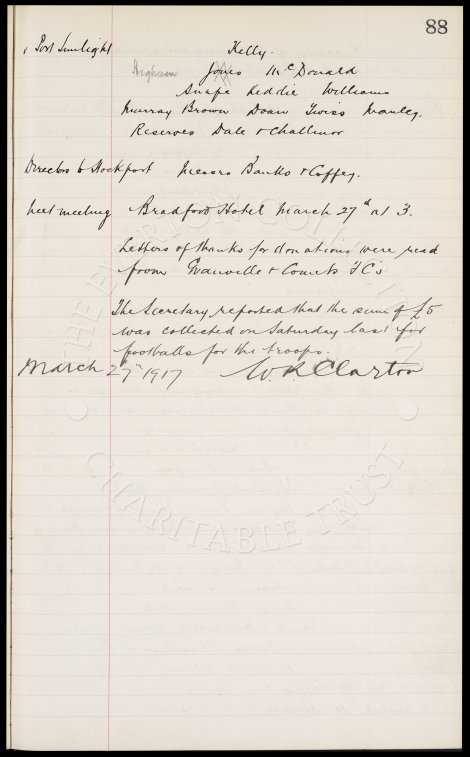 88
v Port Sunlight Kelly.
Higham Jones McDonald
Snape Keddie Williams
Murray Brown Doan Twiss Manley.
Reserves Dale & Challinor
Directors to Stockport Messrs Banks & Coffey.
next meeting Bradford Hotel March 27th at 3.
Letters of thanks for donations were read
from & Counts FC's
The Secretary reported that the sum of £5
was collected on Saturday last for
footballs for the troops.
March 27th 1917 W. R. Clayton
THE EVERTON COLLECTION
CHARITABLE TRUST